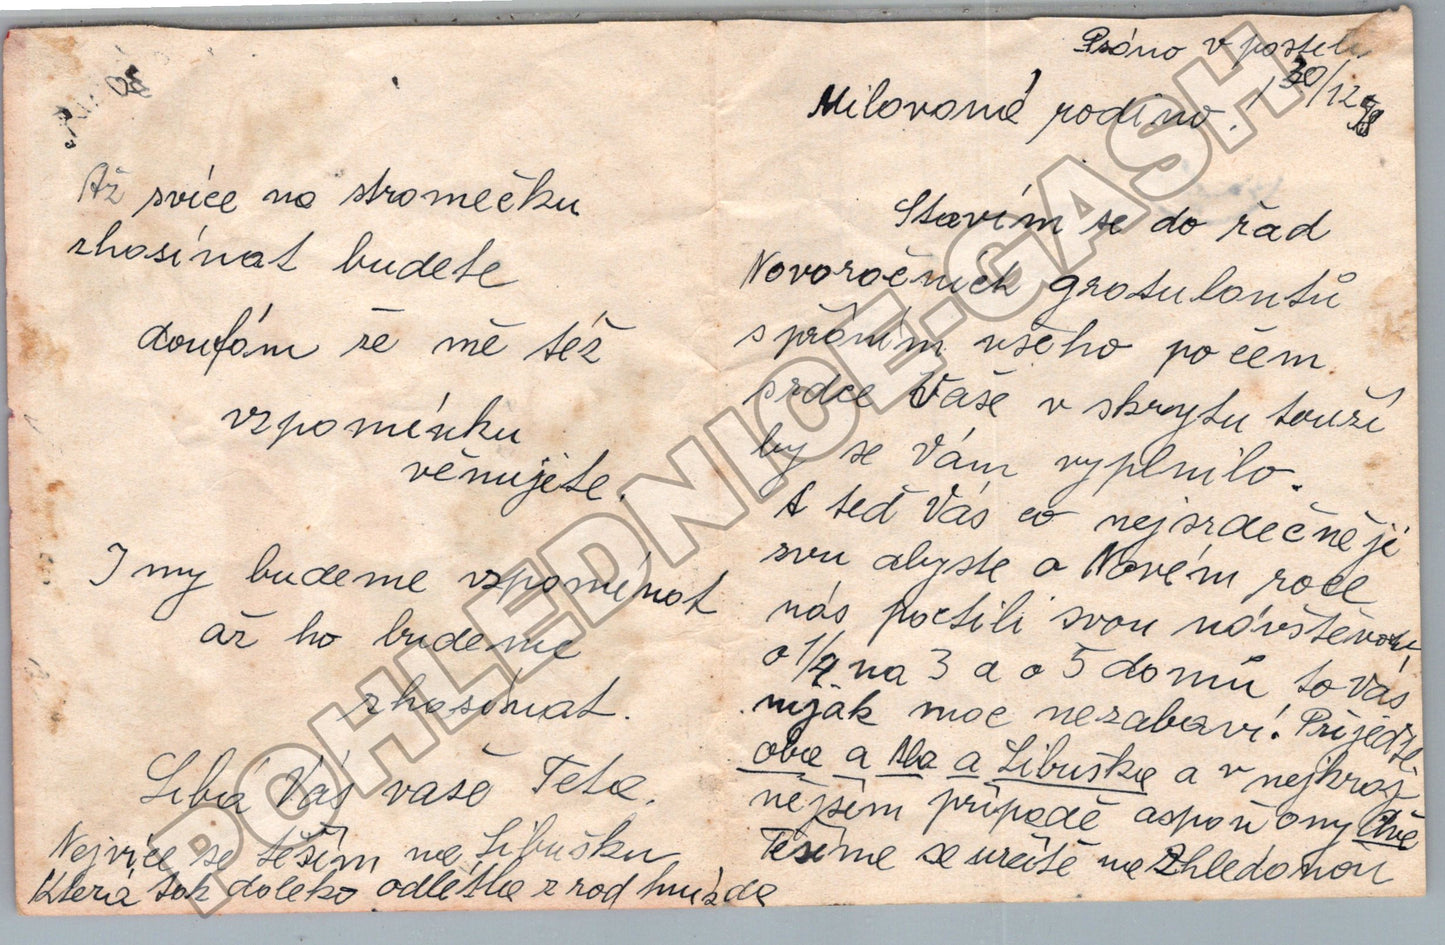 Ráno v posteli
30/12 38
Milovaná rodino!
Stavím se do řad
Novoročních gratulantů
s přáním všeho po čem
srdce Vaše v skrytu touží
by se Vám vyplnilo.
A teď Vás co nejsrdečněji
zvu abyste o Novém roce
nás poctili svou návštěvou
o 1/4 na 3 a o 5 domů to Vás
nijak moc nezabaví! Přijedťe
oba a Ala a Libuška a v nejkraj
nějším případě aspoň ony dvě
Těšíme se určitě na Zhledanou
Až svíce na stromečku
zhasínat budete
doufám že mě též
vzpomínku
věnujete.
I my budeme vzpomínat
až ho budeme
zhasínat.
Líbá Váš vaše Teta.
Nejvíce se těším na Libušku
Která tak daleko odlétla z rod hnízda
POHLEDNICE.GASH